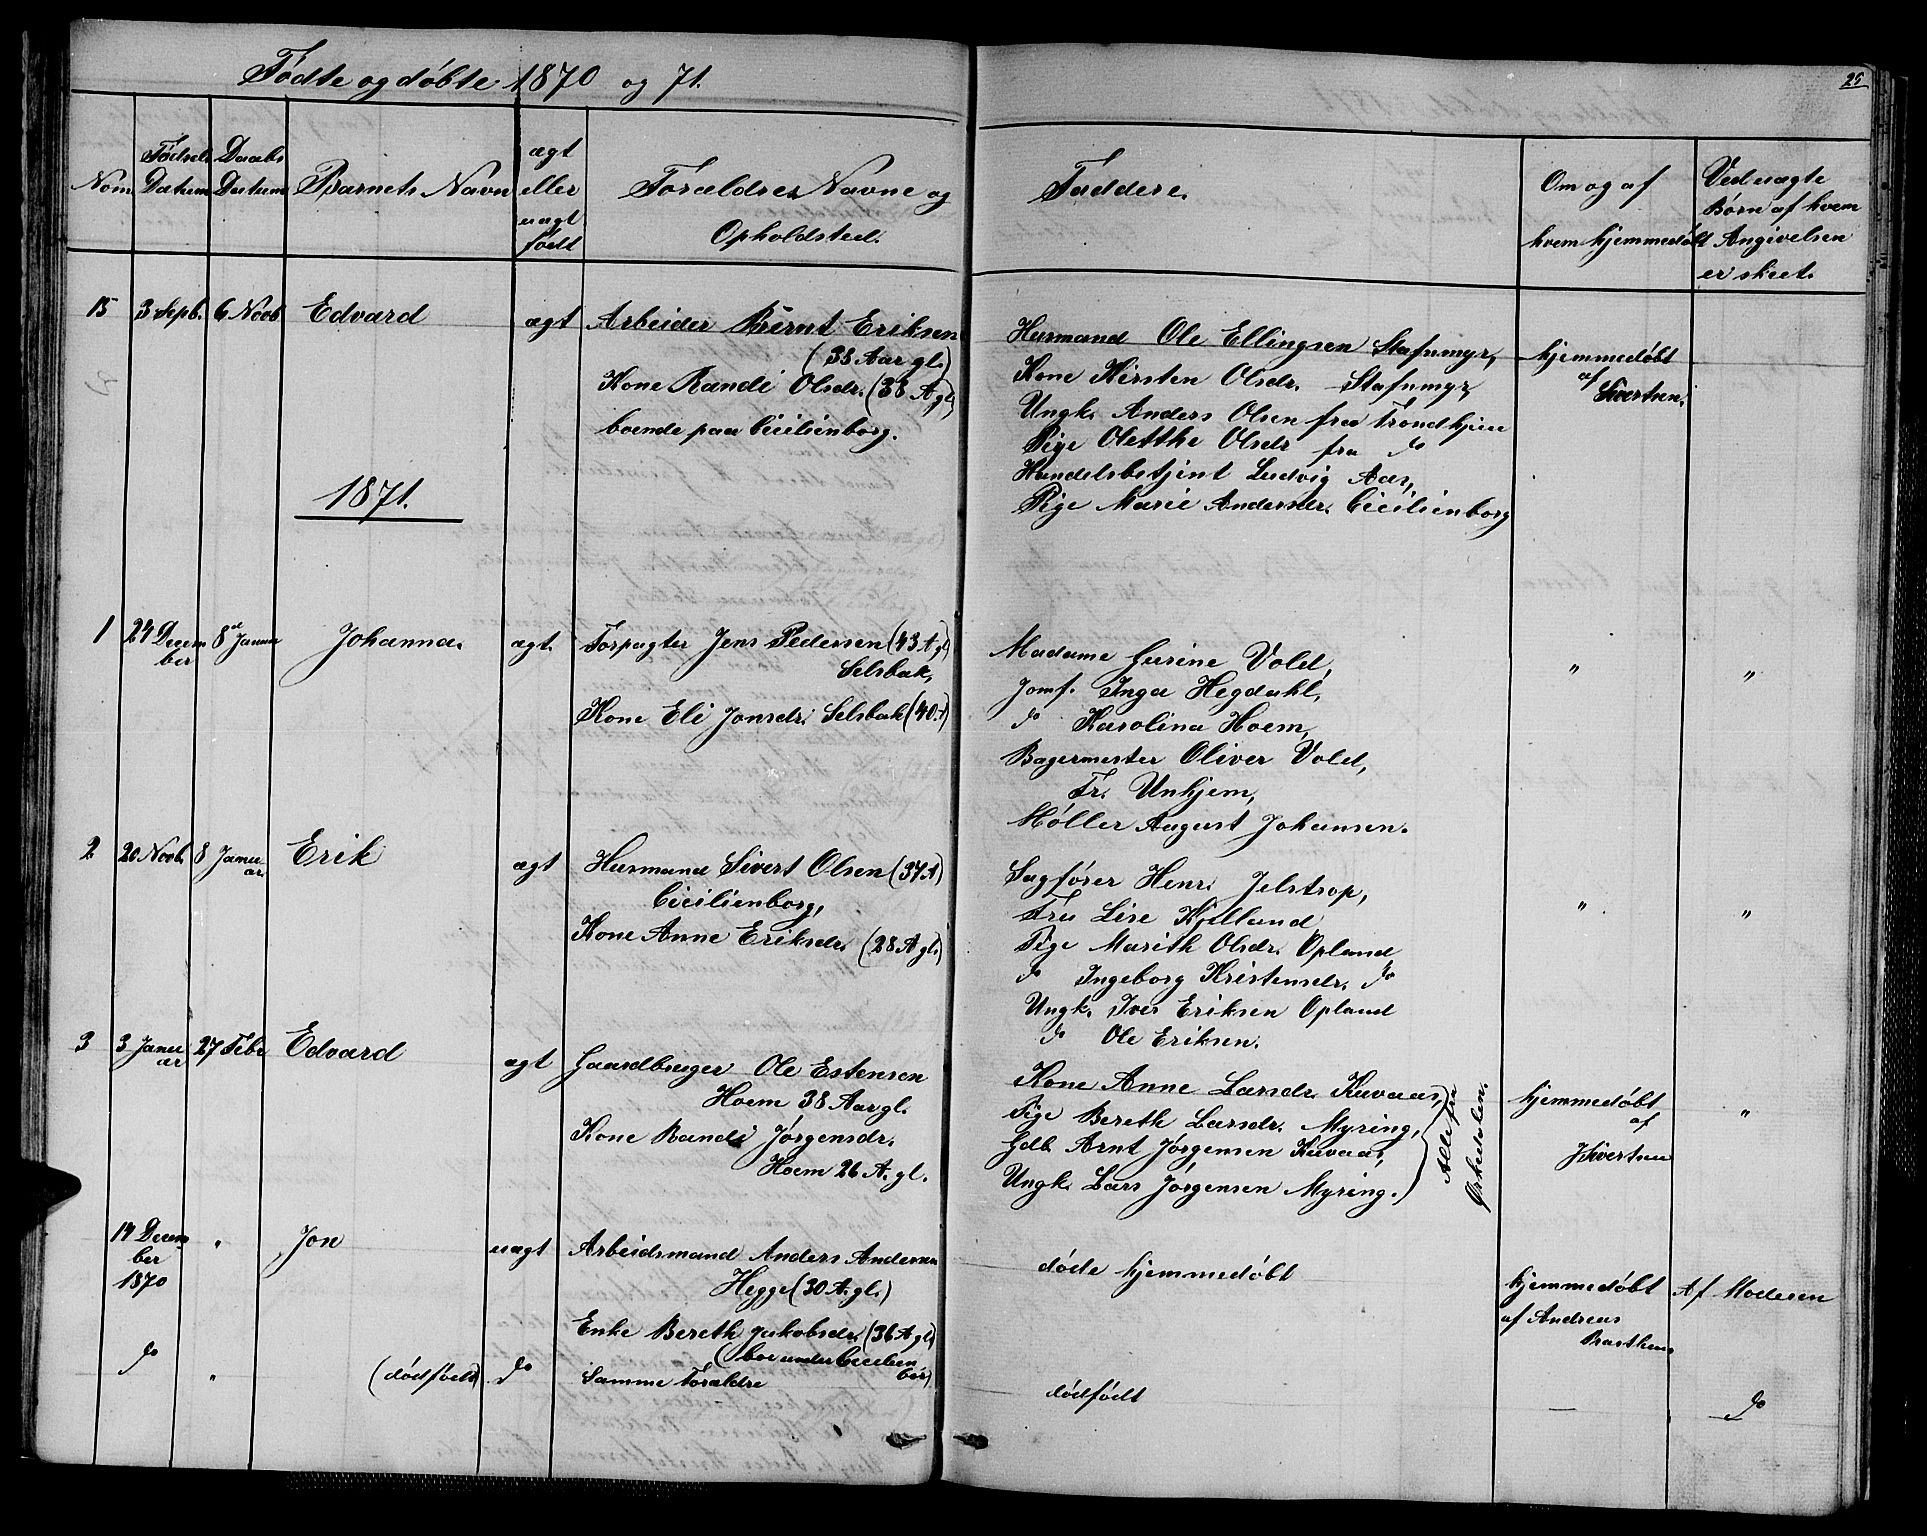 Fødte og døbte 1870 og 71.
25
Nom.
Fødsels Datum
Daabs Datum
Barnets Navn
ægt eller uægt født
Forældres Navne og Opholdsted.
Faddere.
Om og af hvem hjemmedøbt
Ved uægte Børn af hvem Angivelsen er skeet.
15 3 Sepb. 6 Novb Edvard ægt Arbeider Bernt Eriksen
(35 Aar gl.)
Kone Randi Olsdr. (33 A gl)
boende paa Cicilienborg.
Husmand Ole Ellingsen Stafnmyr,
Kone Kirsten Olsdr. Stafnmyr
Ungk. Anders Olsen fra Trondhjem
Pige Oletthe Olsdr fra do
Handelsbetjent Ludvig Aas,
Pige Marie Andersdr. Cicilienborg
hjemmedøbt
af
Sivertsen.
1871.
1 24 December 8de Januar Johanna. ægt. Forpagter Jens Pedersen (43 A gl)
Selsbak,
Kone Eli Jonsdr. Selsbak (40.)
Madame Gurine Vold,
Jomf. Inga Hegdahl,
do Karolina Hoem,
Bagermester Oliver Vold,
Fr. Unhjem,
Møller August Johansen.
" "
2 20 Novb. 8 Januar. Erik ægt Husmand Sivert Olsen (37 A)
Cicilienborg,
Kone Anne Eriksdr. (28 A gl.)
Sagfører Henr. Jelstrop,
Fru Lise Kjelland
Pige Marith Olsdr. Opland
do Ingeborg Kristensdr. do
Ungk. Iver Eriksen Opland
do Ole Eriksen.
" "
3 3 Januar 27 Febr Edvard ægt Gaardbruger Ole Estensen
Hoem 38 Aar gl.
Kone Randi Jørgensdr.
Hoem 26 A. gl.
Kone Anne Larsdr. Kuvaas,
Pige Bereth Larsdr. Myring,
Gdb. Arnt Jørgensen Kuvaas,
Ungk. Lars Jørgensen Myring.
Alle fra
Ørkedalen.
hjemmedøbt
af
J Sivertsen
"
14 December
1870
" Jon uægt Arbeidsmand Anders Andersen
Hegge (30 A. gl.)
Enke Bereth Jakobsdr. (36 A gl.)
(boe under Cecilienborg)
døde hjemmedøbt
hjemmedøbt
af Andreas
Af Moderen
do " (dødfødt) do Samme Forældre
dødfødt
— do